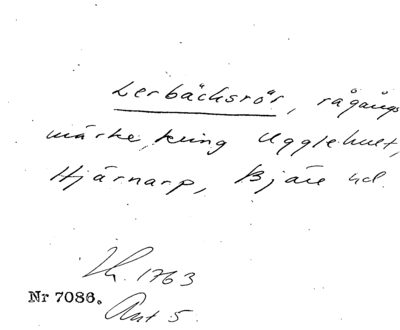 Lerbäcksrör, rågångs
märke, kring Ugglehult,
Hjärnarp, Bjäre hd.
Lh. 1763
Nr 7086.
Ant 5.